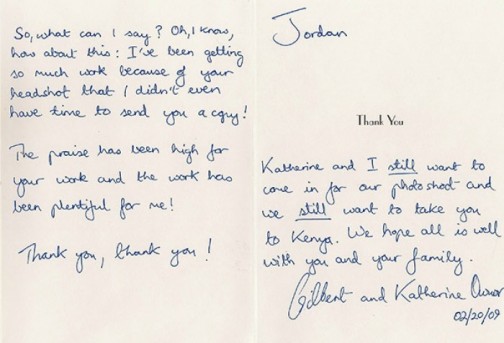 So, what can I say? Oh, I know,
how about this: I've been getting
so much work because of your
headshot that I didn't even
have time to send you a copy!
The praise has been high for
your work and the work has
been plentiful for me!
Thank you, thank you!
Jordan
Thank You
Katherine and I still want to
come in for our photoshoot and
we still want to take you
to Kenya. We hope all is well
with you and your family.
Gilbert and Katherine Owuor
02/20/09